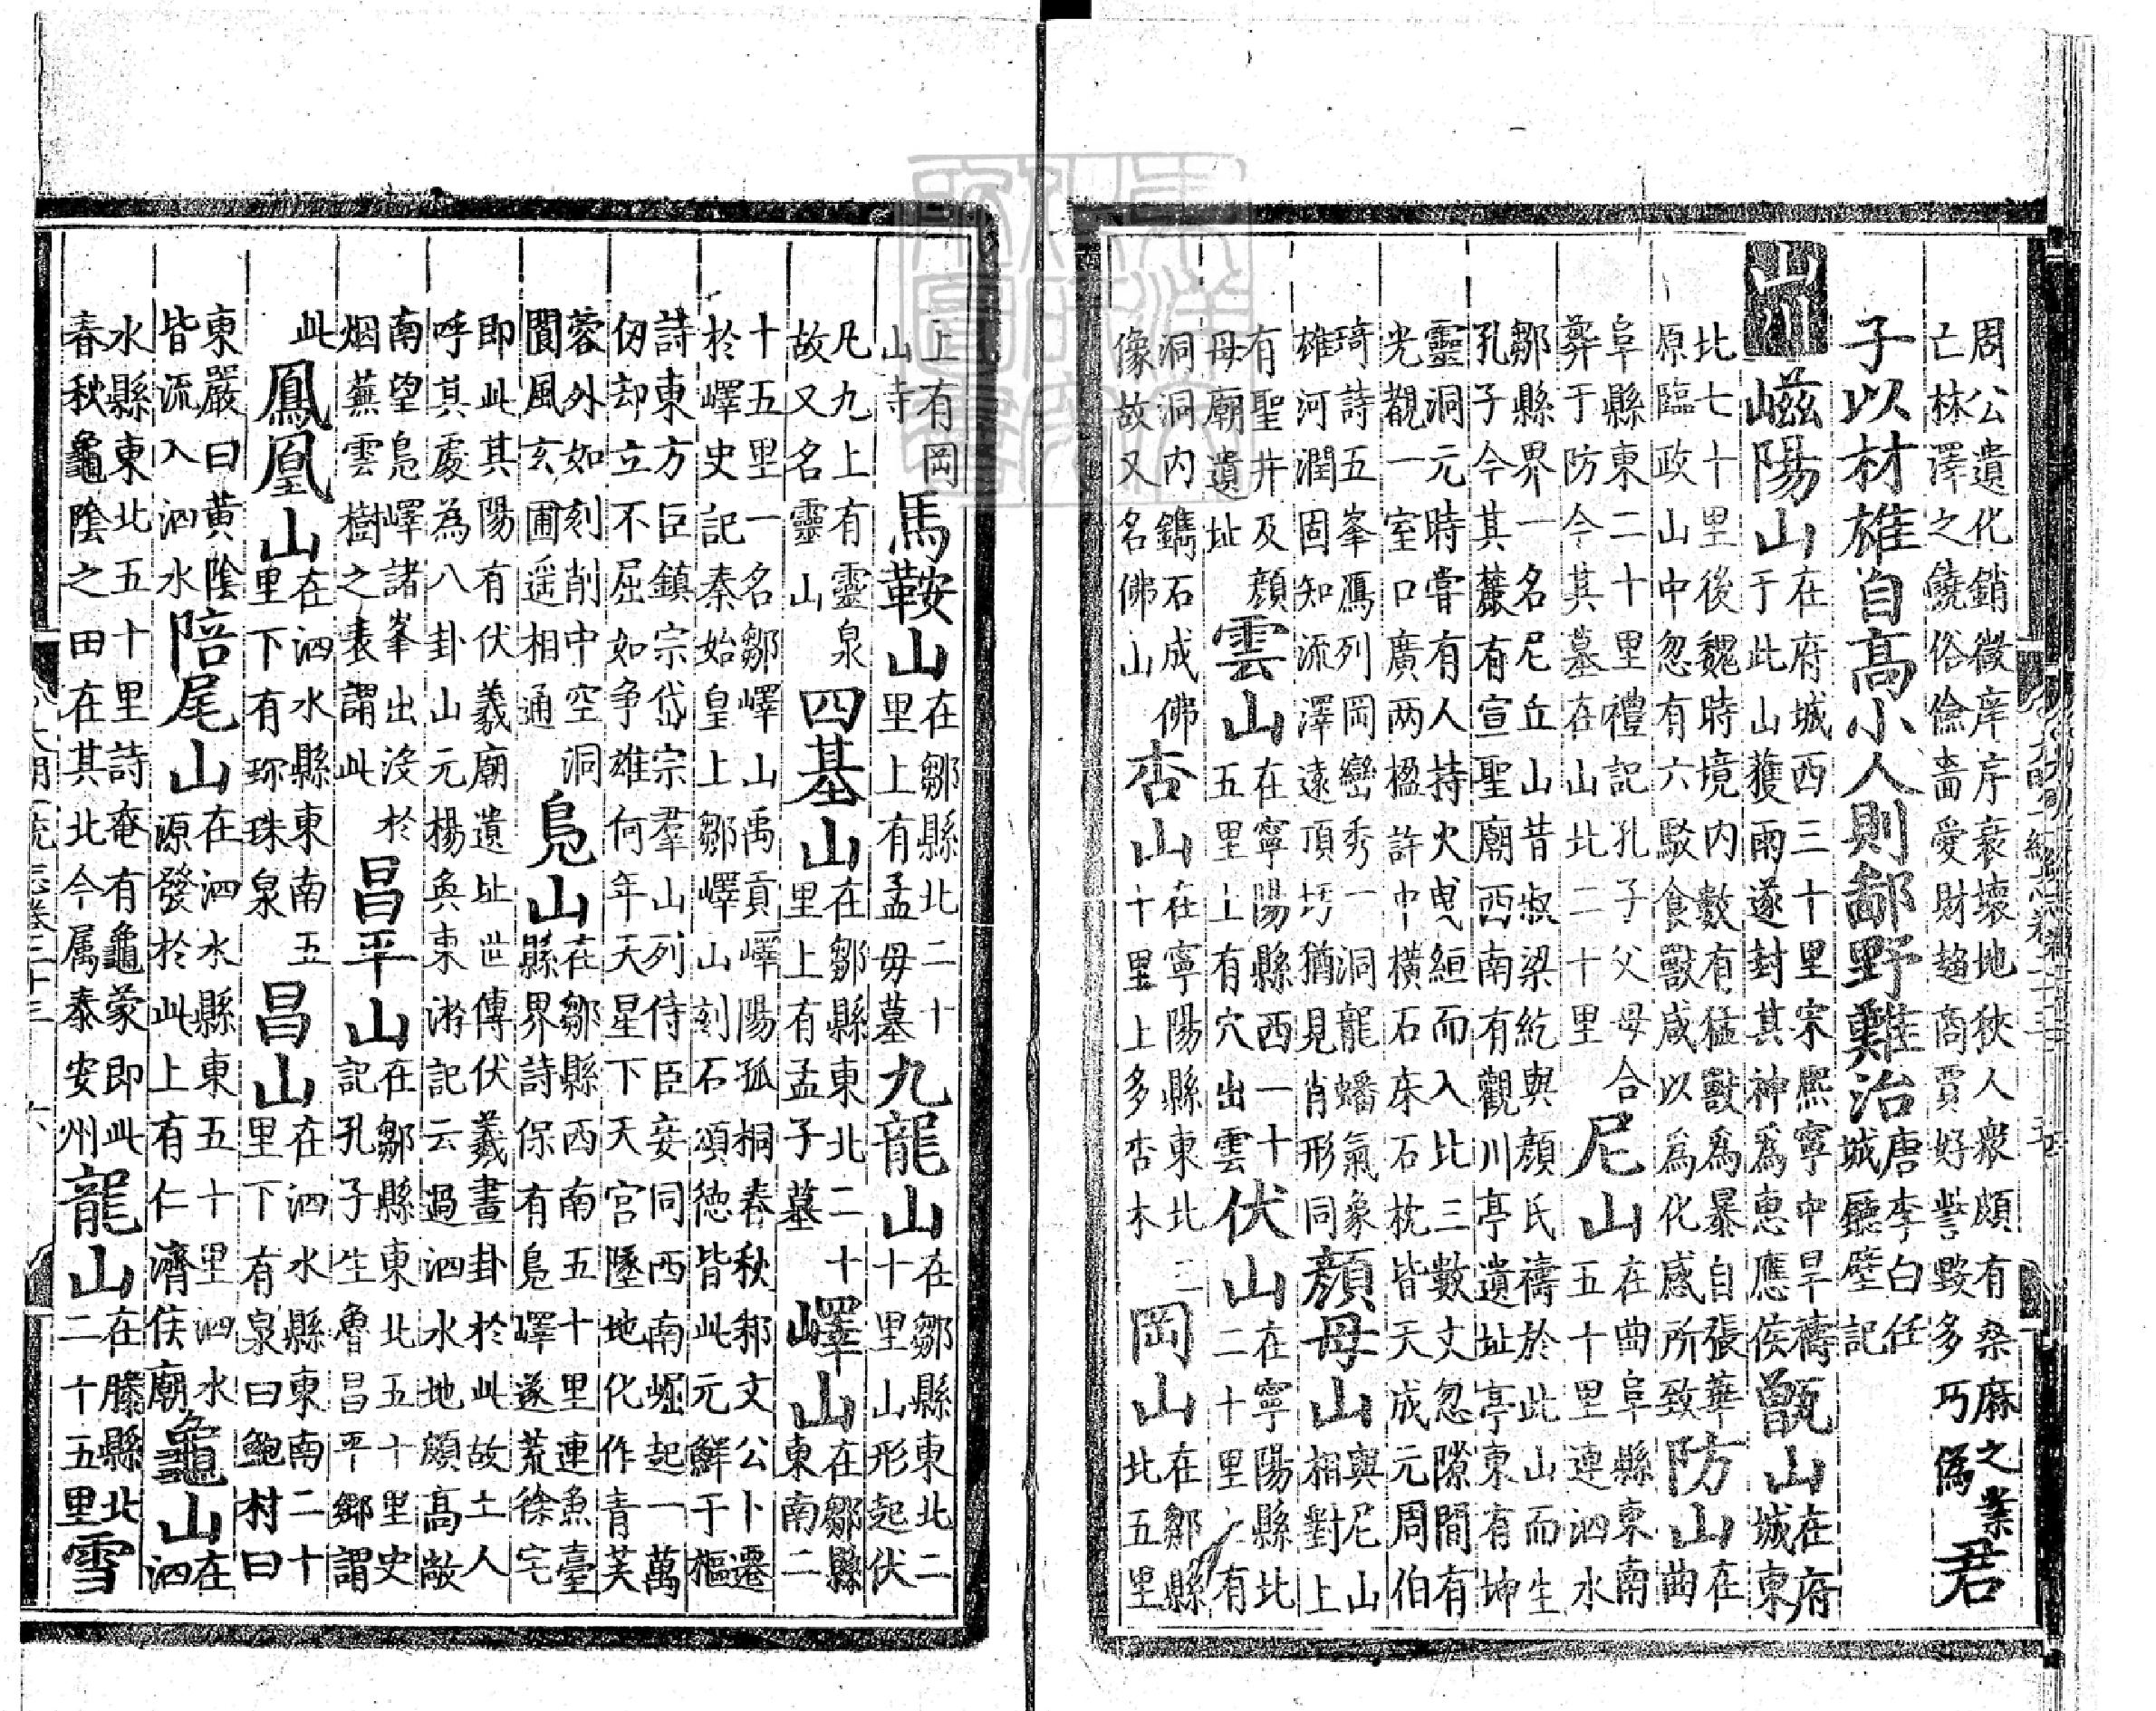 周公遺化銷微庠序衰壞地狹人衆頗有桑麻之業
亡林澤之饒俗儉嗇愛財趨商賈好訾毀多巧偽
君
子以材雄自高小人則鄙野難治
唐李白任
城廳壁記
山川
嵫陽山
在府城西三十里宋熙寧中旱禱
于此山獲雨遂封其神為惠應侯
甑山
在府
城東
北七十里後魏時境内數有猛獸為暴自張華
原臨政山中忽有六駮食獸咸以為化感所致
防山
在
曲
阜縣東二十里禮記孔子父母合
葬于防今其墓在山北二十里
尼山
在曲阜縣東南
五十里連泗水
鄒縣界一名尼丘山昔叔梁紇與顔氏禱於此山而生
孔子今其麓有宣聖廟西南有觀川亭遺址亭東有坤
靈洞元時嘗有人持火曳絙而入比三數丈忽隙間有
光覩一室口廣兩楹許中橫石床石枕皆天成元周伯
琦詩五峯鴈列岡巒秀一洞龍蟠氣象
雄河潤固知流澤遠頂圬猶見肖形同
顔母山
與尼山
相對上
有聖井及顔
母廟遺址
雲山
在寧陽縣西一十
五里上有穴出雲
伏山
在寧陽縣北
二十里上有
洞洞内鐫石成佛
像故又名佛山
杏山
在寧陽縣東北
十里上多杏木
岡山
在鄒縣
北五里
上有岡
山寺
馬鞍山
在鄒縣北二十
里上有孟母墓
九龍山
在鄒縣東北二
十里山形起伏
凡九上有靈泉
故又名靈山
四基山
在鄒縣東北二十
里上有孟子墓
嶧山
在鄒縣
東南二
十五里一名鄒嶧山禹貢嶧陽孤桐春秋邾文公卜遷
於嶧史記秦始皇上鄒嶧山刻石頌徳皆此元鮮于樞
詩東方巨鎮宗岱宗羣山列侍臣妾同西南崛起一萬
仭却立不屈如争雄何年天星下天宫墜地化作青芙
蓉外如刻削中空洞
閬風玄圃遥相通
鳬山
在鄒縣西南五十里連魚臺
縣界詩保有鳬嶧遂荒徐宅
即此其陽有伏羲廟遺址世傳伏羲畫卦於此故土人
呼其處為八卦山元楊奐東游記云過泗水地頗高敞
南望鳬嶧諸峯出没於
烟蕪雲樹之表謂此
昌平山
在鄒縣東北五十里史
記孔子生魯昌平鄉謂
此
鳳凰山
在泗水縣東南五
里下有珎珠泉
昌山
在泗水縣東南二十
里下有泉曰鮑村曰
東巖曰黄陰
皆流入泗水
陪尾山
在泗水縣東五十里泗水
源發於此上有仁濟侯廟
龜山
在
泗
水縣東北五十里詩奄有龜蒙即此
春秋龜陰之田在其北今属泰安州
龍山
在滕縣北
二十五里
雪